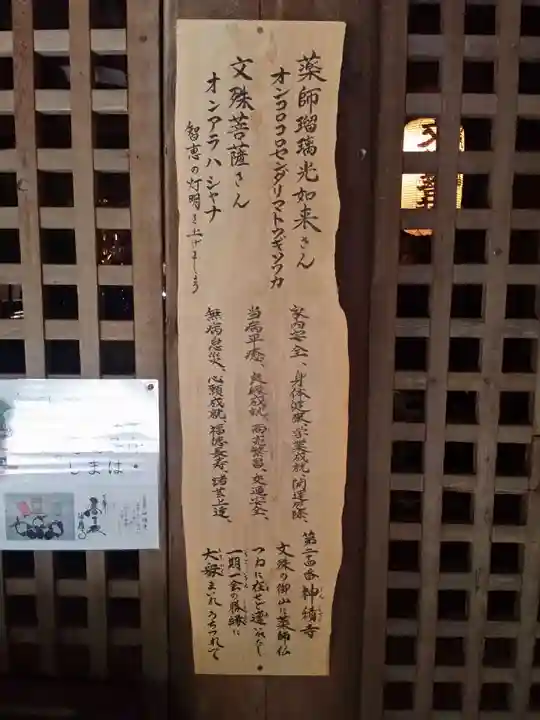 薬師瑠璃光如来さん
オンコロコロセンダリマトウギソワカ
文殊菩薩さん
オンアラハシャナ
智恵の灯明を上げましょう
家内安全、身体健康、学業成就、開運厄除、
当病平癒、良縁成就、商売繁昌、交通安全、
無病息災、心願成就、福徳長寿、諸芸上達、
神積寺
文殊の御山に薬師仏
つねに在せど遭いがたし
一期一会の勝縁に
大嶽まいれうちつれて